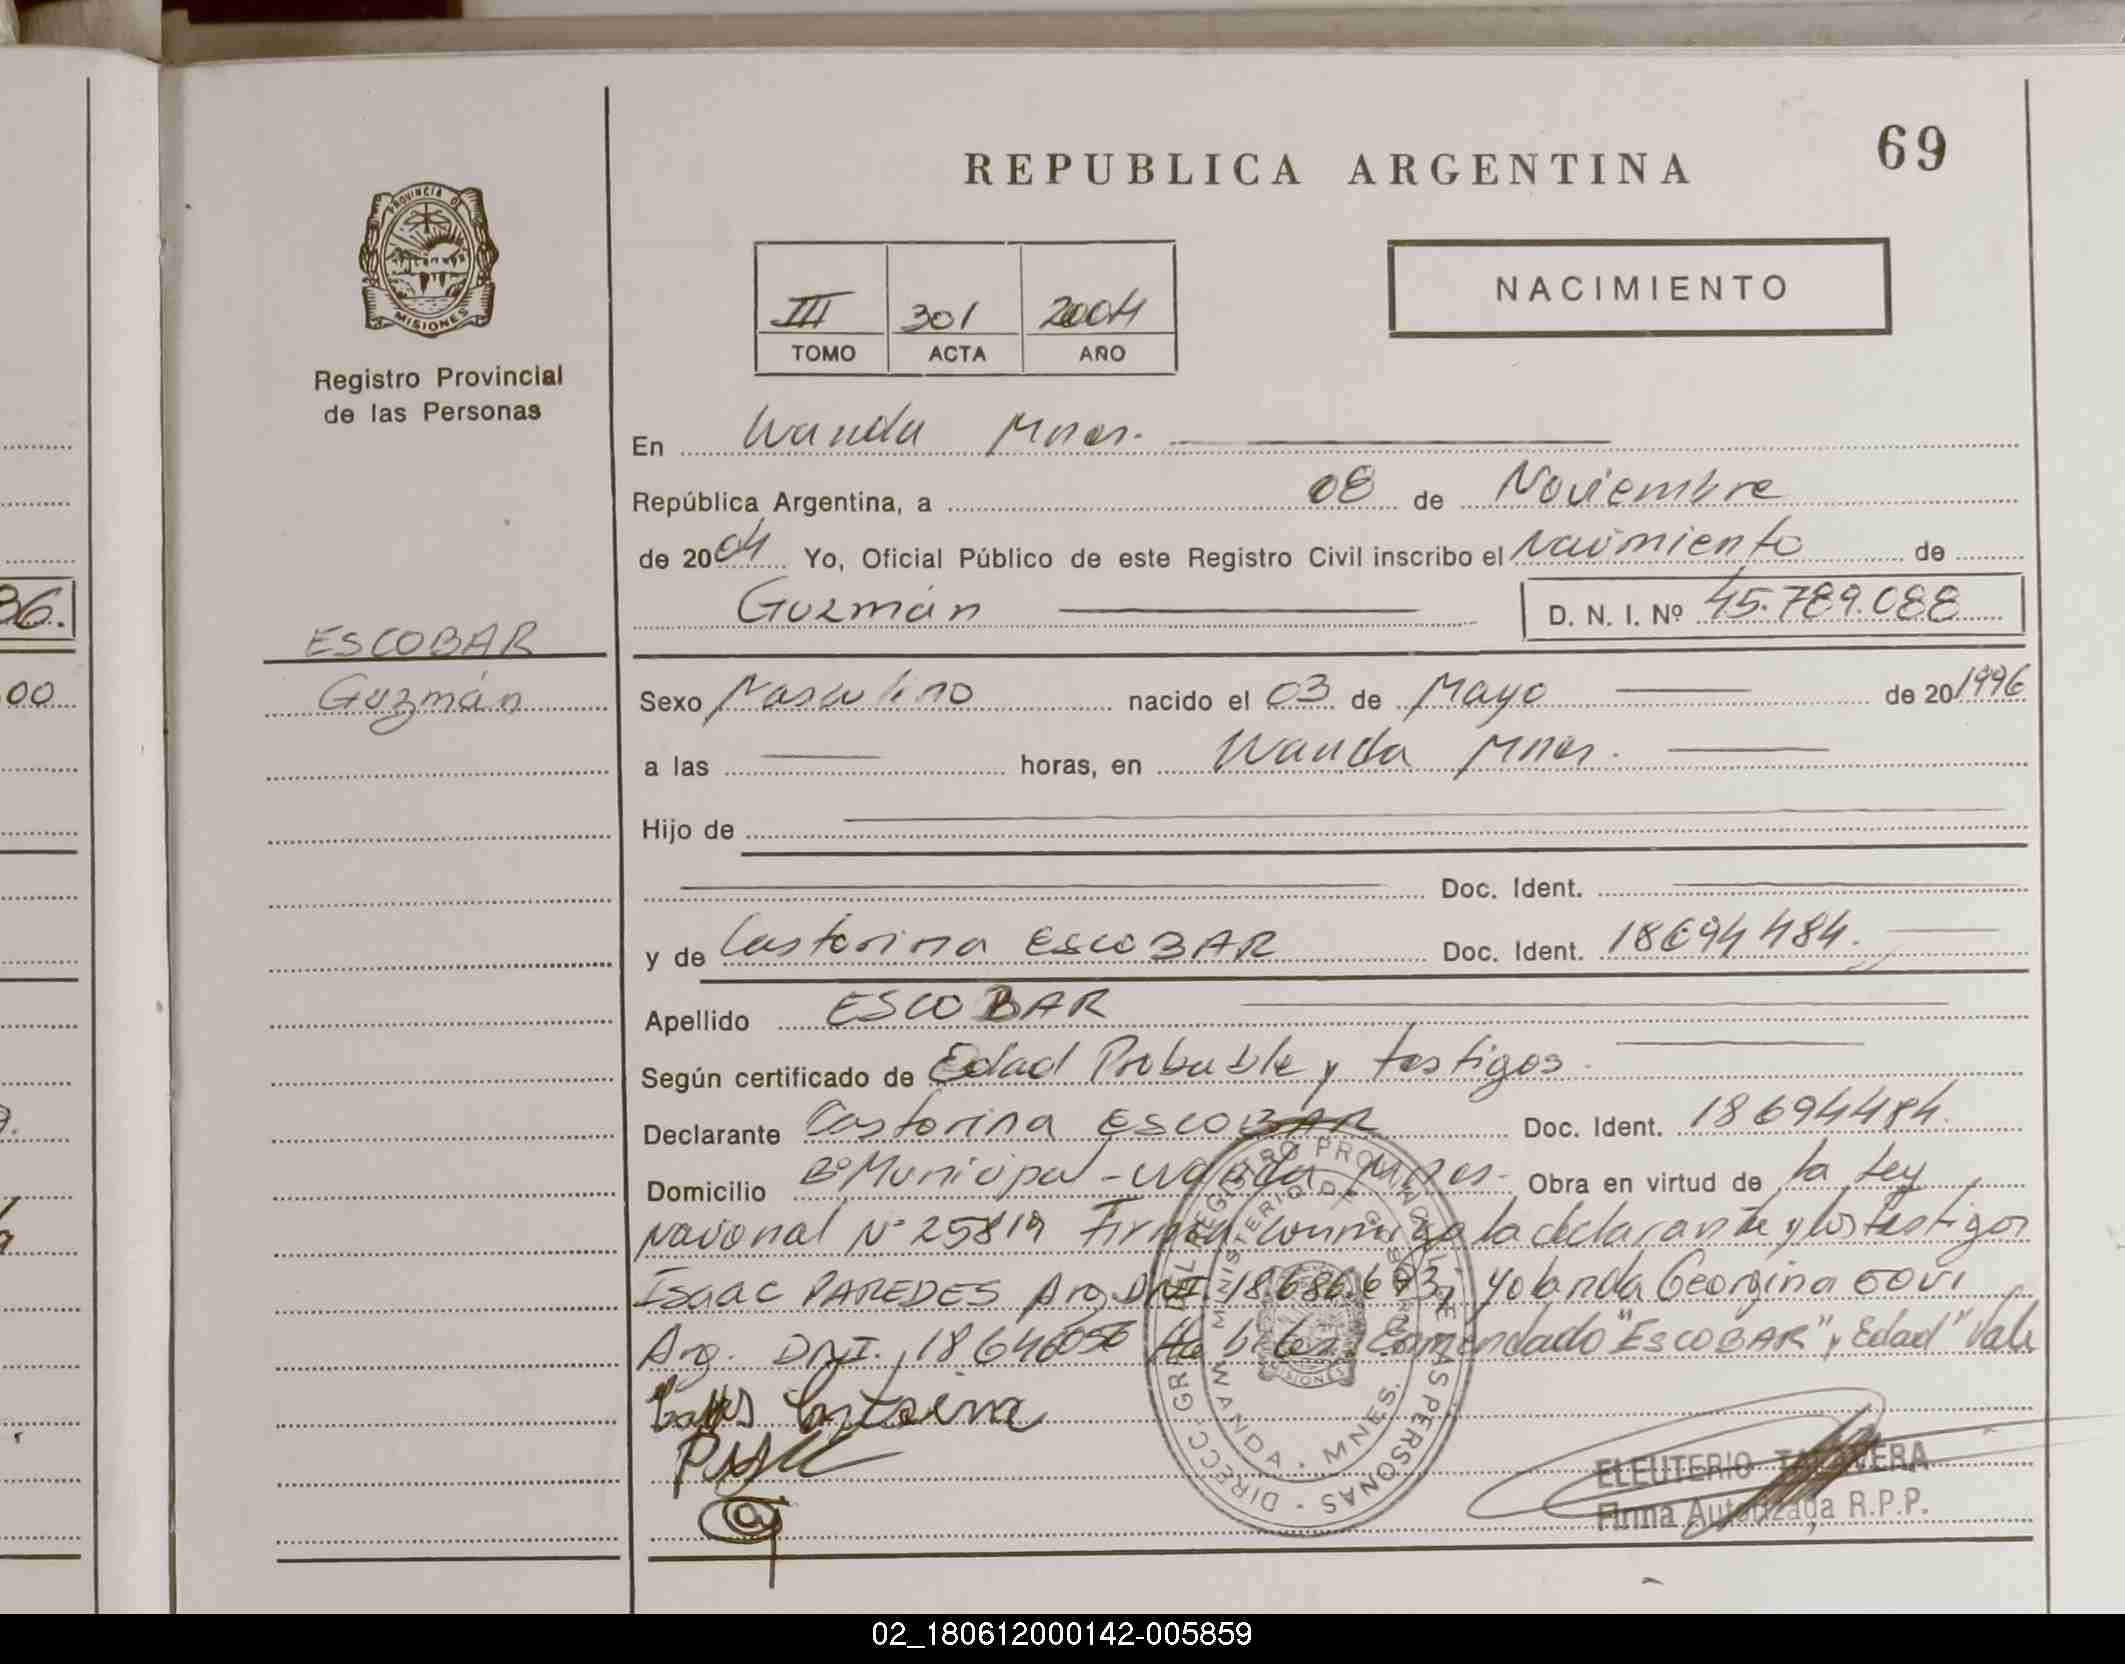 REPUBLICA ARGENTINA
69
PROVINCIA D
MISIONES
Registro Provincial
de las Personas
III 301 2004
TOMO ACTA AÑO
NACIMIENTO
En Wanda Mnes.
República Argentina, a 08 de Noviembre
de 2004 Yo, Oficial Público de este Registro Civil inscribo el Nacimiento de
Guzmán D. N. I. Nº 45.789.088
36.
ESCOBAR
Guzmán
00
Sexo Masculino nacido el 03 de Mayo de 20 1996
a las horas, en Wanda Mnes.
Hijo de
Doc. Ident.
y de Castorina ESCOBAR Doc. Ident. 18694484.
Apellido ESCOBAR
Según certificado de Edad Probable y testigos
Declarante Castorina ESCOBAR Doc. Ident. 18694484.
Domicilio Bº Municipal - Wanda Mnes. Obra en virtud de la Ley
Nacional Nº 25819 Firman conmigo la declarante y los testigos
Isaac PAREDES Arg. DNI. 18.686.693, Yolanda Georgina
Arg. DNI. 18646056 Enmendado "ESCOBAR" y Edad" Vale
Castorina
DIRECC. GRAL. DEL REGISTRO PROVINCIAL DE LAS PERSONAS
MINISTERIO DE GOBIERNO
WANDA - MNES.
MISIONES
ELEUTERIO TALAVERA
Firma Autorizada R.P.P.
02_180612000142-005859